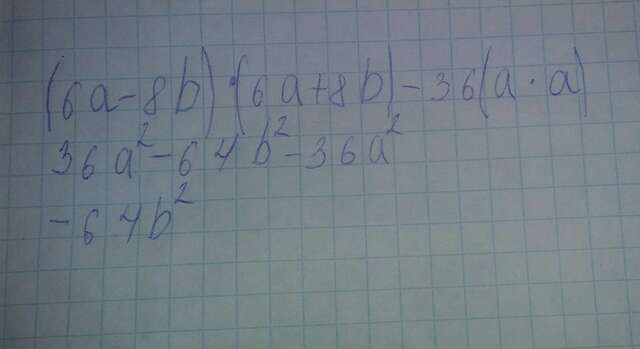 (6a-8b)·(6a+8b)-36(a·a)
36a²-64b²-36a²
-64b²